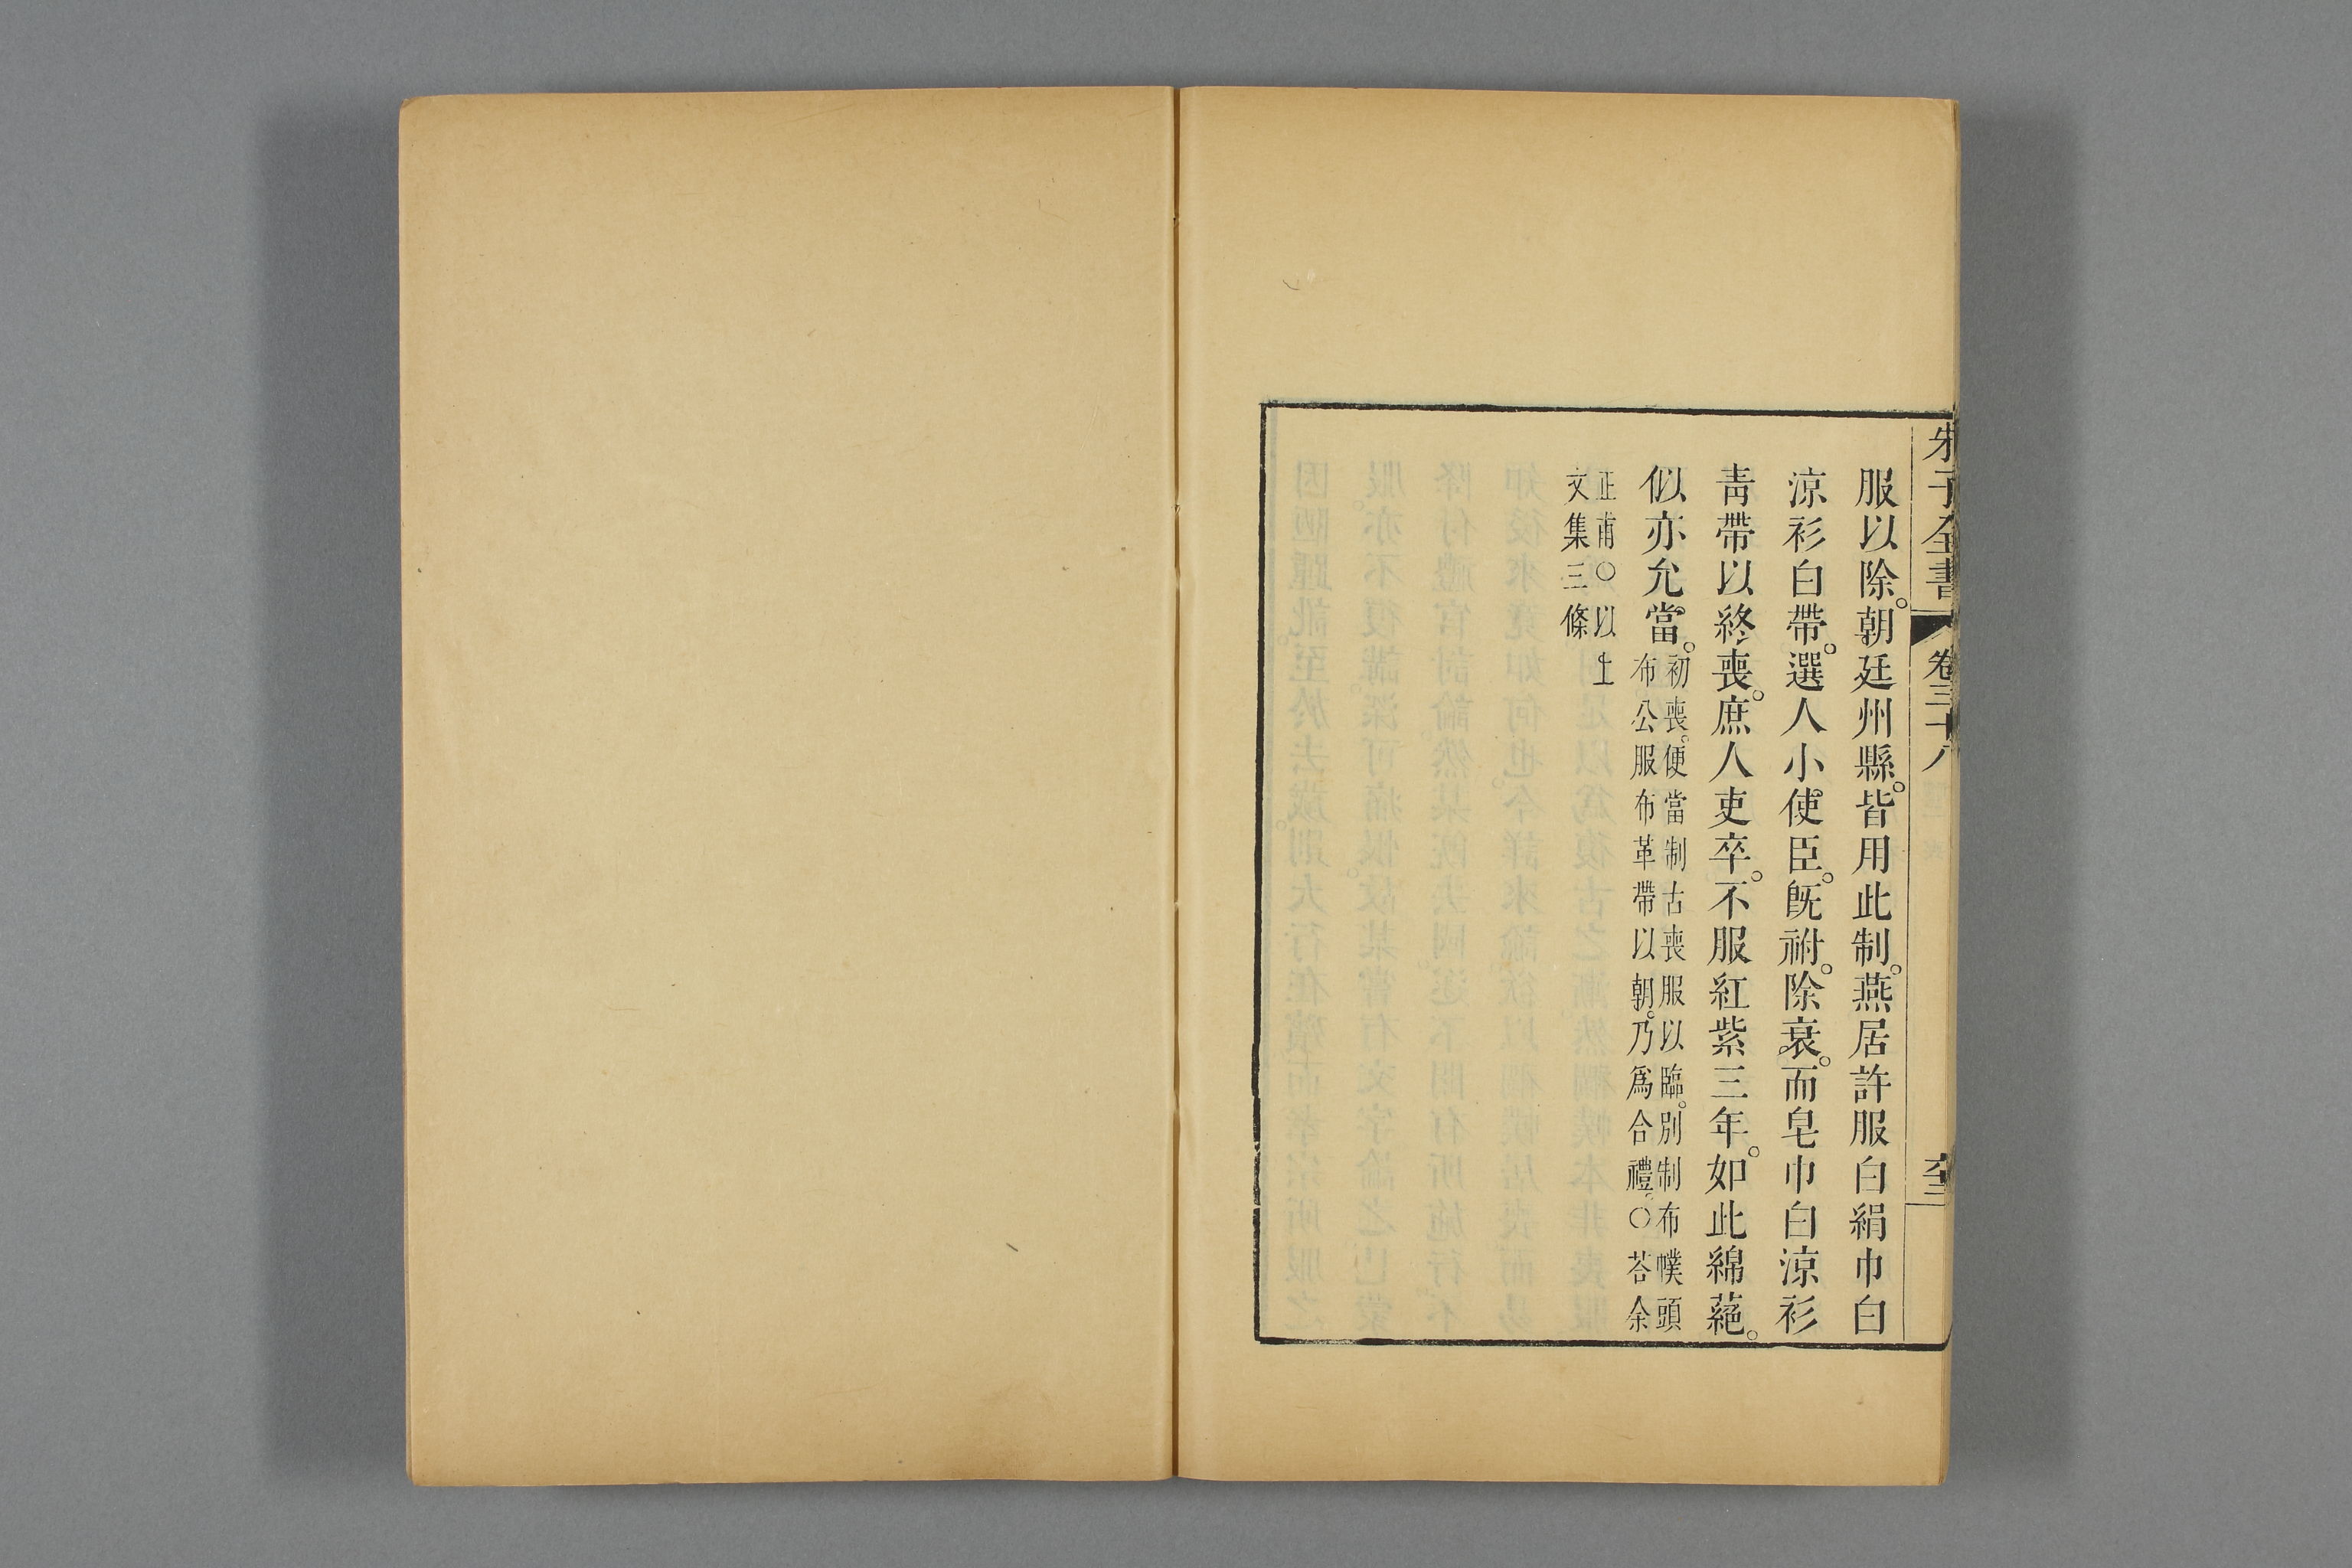 朱子全書 卷三十八
服以除。朝廷州縣。皆用此制。燕居許服白絹巾白
涼衫白帶。選人小使臣。旣祔。除衰。而皂巾白涼衫
青帶以終喪。庶人吏卒。不服紅紫三年。如此綿蕝。
似亦允當。
初喪。便當制古喪服以臨。別制布幞頭
布公服布革帶以朝。乃爲合禮。○荅余
正甫○以上
文集三條